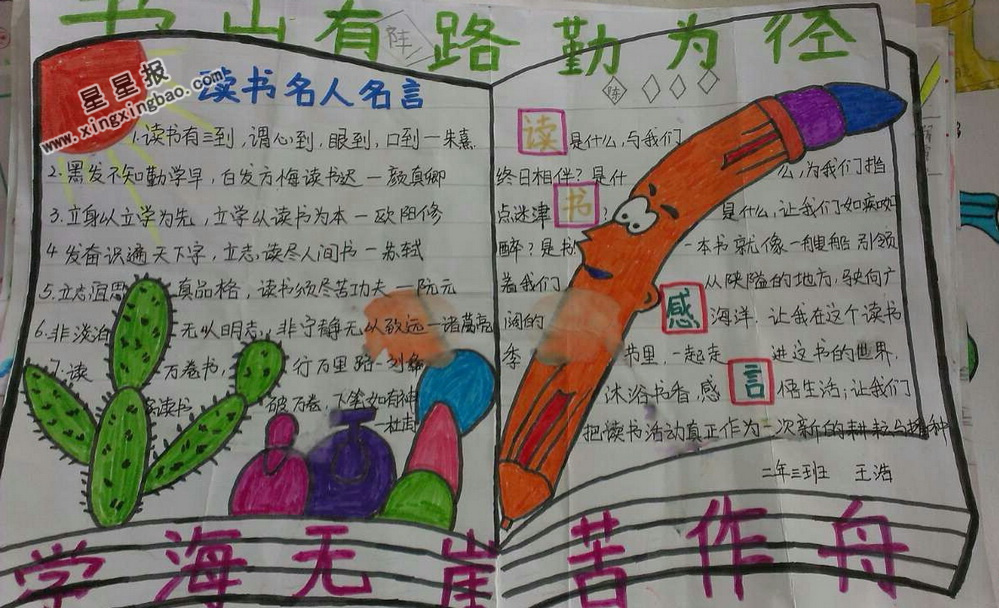 书山有路勤为径
阵
星星报
www.xingxingbao.com
读书名人名言
1.读书有三到,谓心到,眼到,口到一朱熹
2.黑发不知勤学早,白发方悔读书迟一颜真卿
3.立身以立学为先,立学以读书为本一欧阳修
4发奋识遍天下字,立志读尽人间书一苏轼
5.立志 真品格,读书须尽苦功夫一阮元
6.非淡泊 无以明志,非宁静无以致远一诸葛亮
7.读 万卷书, 行万里路一刘
读书 破万卷 下笔如有神
一杜甫
读 是什么,与我们
终日相伴?是什 么,为我们指
点迷津 书 ? 是什么,让我们如痴如
醉?是书 一本书就像一艘船 引领
着我们 从狭隘的地方,驶向广
阔的 感 海洋,让我在这个读书
季 节里,一起走 进这书的世界,
沐浴书香,感 言 悟生活;让我们
把读书活动真正作为一次新的耕耘与播种
二年三班 王浩
学海无崖苦作舟